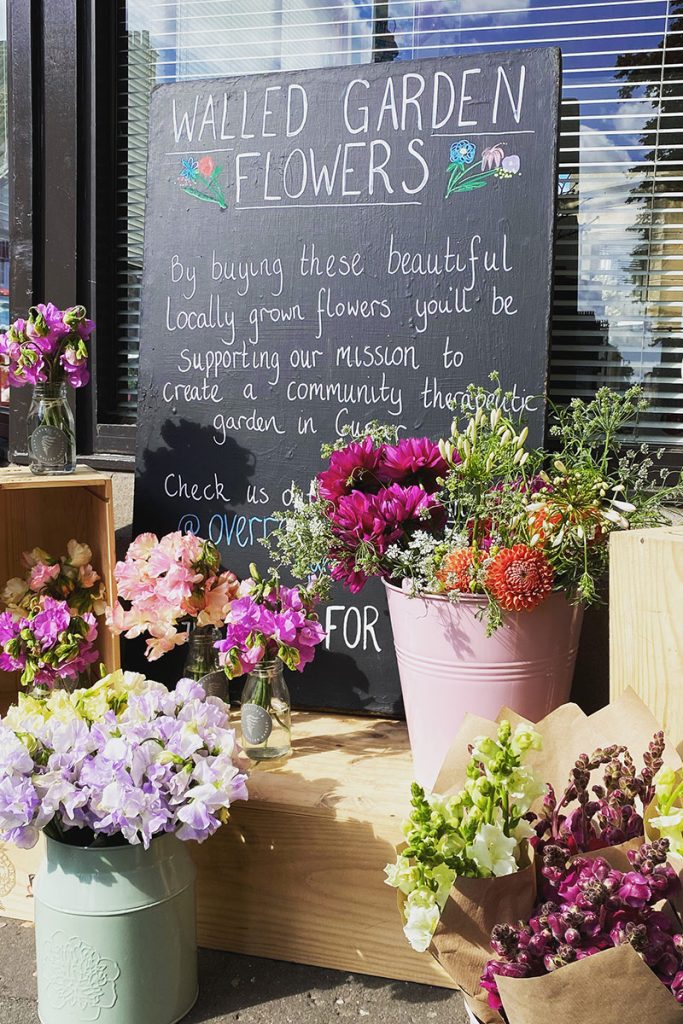 WALLED GARDEN
FLOWERS
By buying these beautiful
locally grown flowers you'll be
supporting our mission to
create a community therapeutic
garden in
Check us
FOR